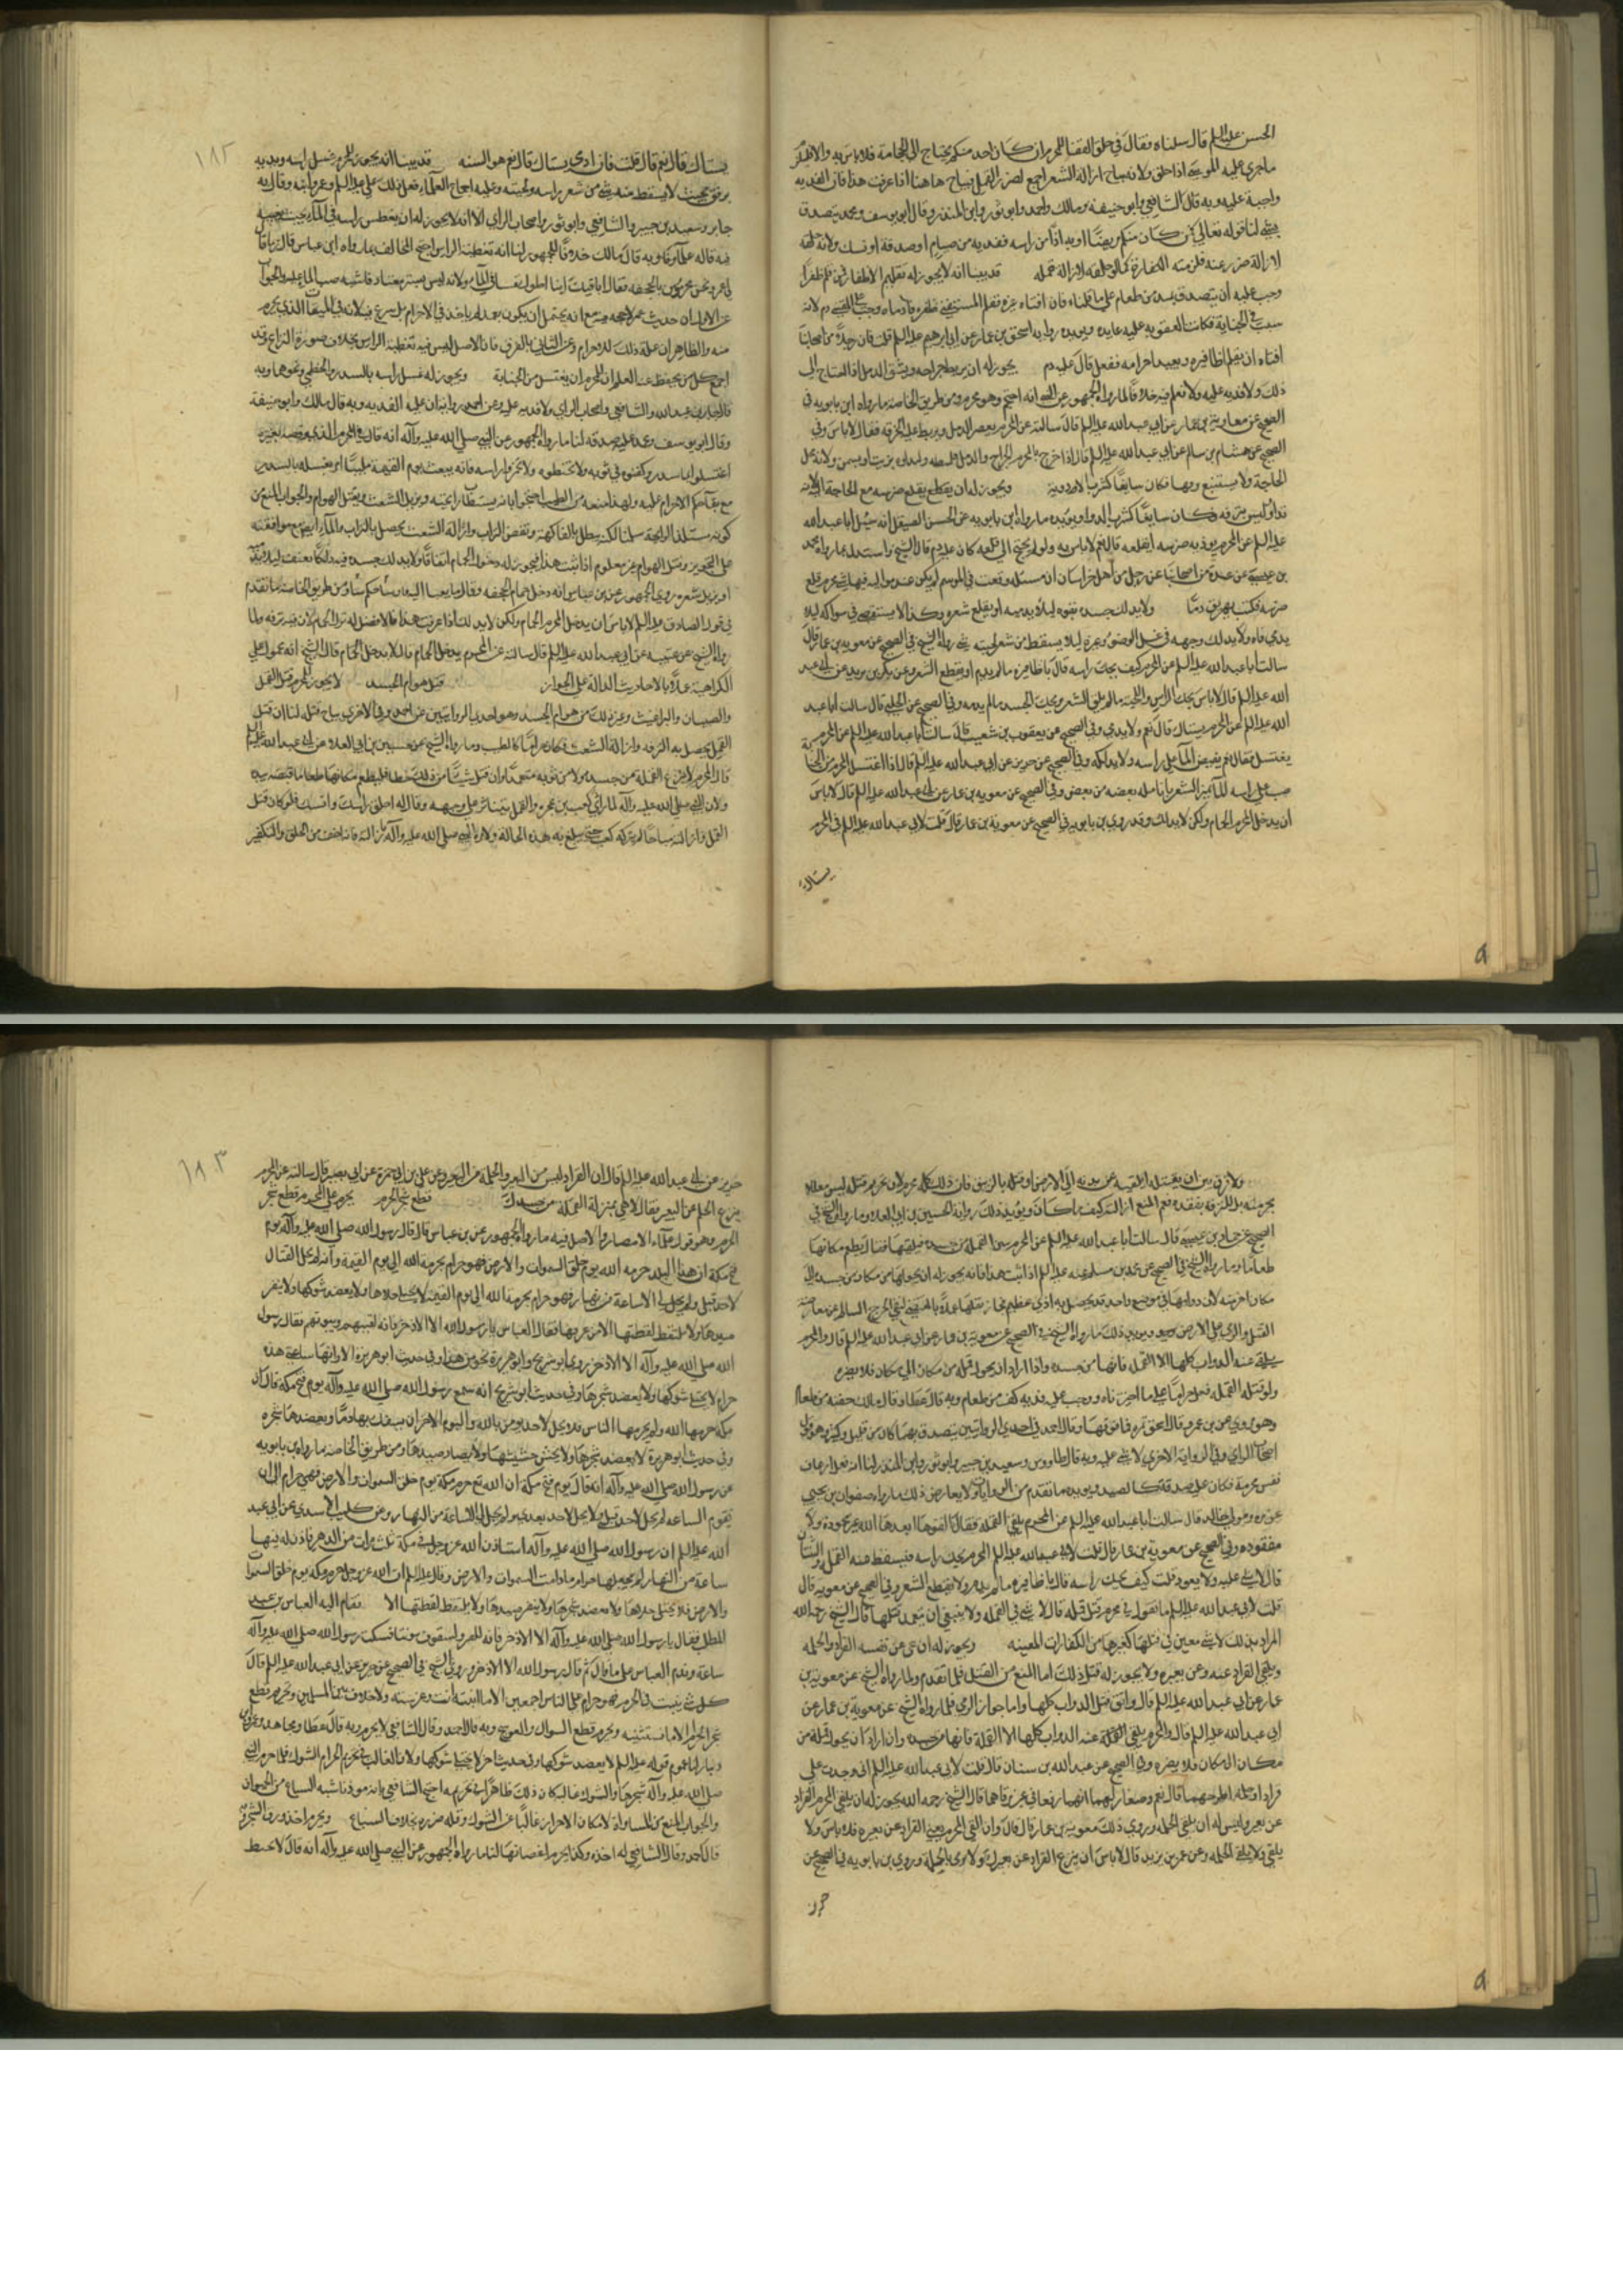 الحسن عليه السلم قال سلناه فقال في حلق القفا للمحرم ان كان احد منكم يحتاج الى الحجامة فلا باس به والا فيلزم
ما جرى عليه الموسى اذا حلق ولانه يباح ازالة الشعر اجمع لضرر القمل فيباح هاهنا اذا عرفت هذا فان الفديه
واجبة عليه وبه قال الشافعي وابو حنيفه ومالك واحمد وابو ثور وابن المنذر وقال ابو يوسف ومحمد يتصدق
بشيء لنا قوله تعالى فمن كان منكم مريضا او به اذا من راسه ففديه من صيام او صدقة او نسك ولانه حلقه
لازالة ضرر عنه فلزمته الكفارة كما لو حلقه لازالة قمله قد بينا انه لا يجوز له تقليم الاظفار فمن قلم ظفرا
وجب عليه ان يتصدق بمد من طعام على ما قلناه فان افتاه غيره فقلم المستفتي ظفره فادماه وجب على المفتي دم لانه
سبب في الجناية فكانت العقوبه عليه عايده ويؤيده روايه اسحق بن عمار عن ابي ابرهيم عليه السلم قلت فان رجلا من اصحابنا
افتاه ان يقلم اظافيره ويعيد احرامه ففعل قال عليه دم يجوز له ان يربط جراحه ويشق الدمل اذا احتاج الى
ذلك ولا فديه عليه ولا نعلم فيه خلافا لما رواه الجمهور عن النبي انه احتجم وهو محرم ومن طريق الخاصه ما رواه ابن بابويه في
الصحيح عن معاوية بن عمار عن ابي عبد الله عليه السلم قال سالته عن المحرم يعصر الدمل ويربط عليه الخرقه فقال لا باس وفي
الصحيح عن هشام بن سالم عن ابي عبد الله عليه السلم قال اذا خرج بالمحرم الخراج والدمل فليبطه وليداوه بزيت او بسمن ولانه محل
الحاجة ولا يستتبع وبها فكان سايغا كشرب الادوية ويجوز له ان يقلع ضرسه مع الحاجة اليه لانه
تداو ليس بترفه فكان سايغا كشرب الدواء ويؤيده ما رواه ابن بابويه عن الحسن الصيقل انه سئل ابا عبد الله
عليه السلم عن المحرم يوذيه ضرسه ايقلعه قال نعم لا باس به ولو لم يحتج الى قلعه كان عليه دم قال الشيخ واستدل بما رواه محمد
بن عيسى عن عدة من اصحابنا عن رجل من اهل خراسان ان مسئلة وقعت في الموسم لم يكن عند مواليه فيها شيء محرم قلع
ضرسه فكتب يهريق دما ولا يدلك جسده بقوه ليلا يدميه او يقلع شعره وكذا لا يستقصي في سواكه ليلا
يدمي فاه ولا يدلك وجهه في غسل الوضوء وغيره ليلا يسقط من شعر لحيته شيء رواه الشيخ في الصحيح عن معوية بن عمار قال
سالت ابا عبد الله عليه السلم عن المحرم كيف يحك راسه قال باظافيره ما لم يدم او يقطع الشعر وعن عمر بن يزيد عن ابي عبد
الله عليه السلم قال لا باس بحك الراس واللحية ما لم يلق الشعر ويحك الجسد ما لم يدمه وفي الصحيح عن الحلبي قال سالت ابا عبد
الله عليه السلم عن المحرم يستاك قال نعم ولا يدمي وفي الصحيح عن يعقوب بن شعيب قال سالت ابا عبد الله عليه السلم عن المحرم
يغتسل فقال نعم يفيض الماء على راسه ولا يدلكه وفي الصحيح عن حريز عن ابي عبد الله عليه السلم قال اذا اغتسل المحرم من الجنابة
صب على راسه الماء يميز الشعر بانامله بعضه من بعض وفي الصحيح عن معويه بن عمار عن ابي عبد الله عليه السلم قال لا باس
ان يدخل المحرم الحمام ولكن لا يتدلك وقد روى بن بابويه في الصحيح عن معوية بن عمار قال قلت لابي عبد الله عليه السلم في المحرم
يستاك
١٨٢
يستاك قال نعم قال قلت فان ادمى يستاك قال نعم هو السنه قد بينا انه يجوز للمحرم غسل راسه وبدنه
برفق بحيث لا يسقط منه شيء من شعر راسه ولحيته وعليه اجماع العلماء فعل ذلك علي عليه السلم وعمر وابنه وقال به
جابر وسعيد بن جبير والشافعي وابو ثور واصحاب الراي الا انه لا يجوز له ان يغطس راسه في الماء بحيث يغيبه
فيه قاله علماؤنا وبه قال مالك خلافا للجمهور لنا انه تغطية للراس احتج المخالف بما رواه ابن عباس قال ربما قال
لي عمر ونحن محرمون بالجحفه تعال اباقيك اينا اطول نفسا في الماء ولانه ليس بستر معتاد فاشبه صب الماء عليه والجواب
عن الاول ان حديث عمر لا حجه فيه مع انه يحتمل ان يكون بعد لم ياخذ في الاحرام بل شرع فيه لانه في الميقات الذي يحرم
منه والظاهر ان علة ذلك للاحرام وعن الثاني بالفرق فان الاصل ليس فيه تغطية الراس بخلاف صورة النزاع وقد
اجمع كل من يحفظ عنه العلم ان المحرم ان يغتسل من الجنابة ويجوز له غسل راسه بالسدر والخطمي ونحوها وبه
قال جابر بن عبد الله والشافعي واصحاب الراي ولا فديه عليه وعن احمد رواية ان عليه الفديه وبه قال مالك وابو حنيفة
وقال ابو يوسف ومحمد عليه صدقه لنا ما رواه الجمهور عن النبي صلى الله عليه وآله انه قال في المحرم الذي وقصه بعيره
اغسلوه بماء وسدر وكفنوه في ثوبيه ولا تحنطوه ولا تخمروا راسه فانه يبعث يوم القيمة ملبيا امر بغسله بالسدر
مع بقاء حكم الاحرام عليه ولهذا منعه من الطيب احتجوا بانه يستطاب رايحته ويزيل الشعث ويقتل الهوام والجواب المنع من
كونه مستلذ الرايحة سلمنا لكنه يبطل بالفاكهة وبنفض التراب وازالة الشعث يحصل بالتراب والماء ايضا مع موافقته
على التجويز وقتل الهوام غير معلوم اذا ثبت هذا فيجوز له دخول الحمام اتفاقا ولا يدلك جسده فيه دلكا بعنف ليلا يدميه
او يزيل شعره روى الجمهور عن بن عباس انه دخل حمام الجحفه وقال ما يعبا الله باوساخكم شيئا ومن طريق الخاصه ما تقدم
في قول الصادق عليه السلم لا باس ان يدخل المحرم الحمام ولكن لا يدلك اذا عرفت هذا فالافضل له ترك الحمام لان فيه ترفه ولما
رواه الشيخ عن عقبه عن ابي عبد الله عليه السلم قال سالته عن المحرم يدخل الحمام قال لا يدخل الحمام قال الشيخ انه محمول على
الكراهية عملا بالاحاديث الدالة على الجواز قتل هوام الجسد لا يجوز للمحرم قتل القمل
والصيبان والبراغيث وغير ذلك من هوام الجسد وهو احدى الروايتين عن احمد وفي الاخرى يباح قتله لنا ان قتل
القمل يحصل به الترفه وازالة الشعث فكان حراما كالطيب وما رواه الشيخ عن حسين بن ابي العلاء عن ابي عبد الله عليه السلم
قال المحرم لا ينزع القملة من جسده ولا من ثوبه متعمدا وان قتل شيئا من ذلك خطا فليطعم مكانها طعاما قبضة بيده
ولان النبي صلى الله عليه وآله لما راى كعب بن عجره والقمل يتناثر على وجهه وقال له احلق راسك وانسك فلو كان قتل
القمل وازالته مباحا لم يتركه كعب حتى يبلغ به هذه الحالة ولامره النبي صلى الله عليه وآله بازالته فانه اخف من الحلق والتكفير
ولا فرق بين ان يقتله او يلقيه عن بدنه الى الارض او قتله بالزيبق فان ذلك كله محرم لان تحريم قتله ليس معللا
بحرمته بل للترفه بفقده فعم المنع ازالته كيف ما كان ويؤيد ذلك رواية الحسين بن ابي العلاء وما رواه الشيخ في
الصحيح عن حماد بن عيسى قال سالت ابا عبد الله عليه السلم عن المحرم يبين القملة من جسده فيلقيها فقال يطعم مكانها
طعاما وما رواه الشيخ في الصحيح عن محمد بن مسلم عنه عليه السلم اذا ثبت هذا فانه يجوز له ان يحولها من مكان من جسده الى
مكان اخر منه لان دوامها في موضع واحد قد يحصل به اذى عظيم فجاز نقلها عملا بالمقتضي لنفي الحرج السالم عن معارضة
القتل والرمي على الارض ويؤيد ذلك ما رواه الشيخ في الصحيح عن معوية بن عمار عن ابي عبد الله عليه السلم قال والمحرم
يلقي عنه الدواب كلها الا القمله فانها من جسده واذا اراد ان يحول قملة من مكان الى مكان فلا يضره
ولو قتل القمل فعل حراما على ما اخترناه ووجب عليه فديه كف من طعام وبه قال عطا وقال مالك حفنه من طعام
وهو مروي عن بن عمر وقال اسحق تمره فما فوقها وقال احمد في احدى الروايتين يتصدق بمهما كان من قليل وكثير وهو قول
اصحاب الراي وفي الرواية الاخرى لا شيء عليه وبه قال طاووس وسعيد بن جبير وابو ثور وابن المنذر لنا انه فعل ازهاق
نفس محرمة فكان عليه صدقة كالصيد ويؤيده ما تقدم من الروايات ولا يعارض ذلك ما رواه صفوان بن يحيى
عن مرة مولى خالد قال سالت ابا عبد الله عليه السلم عن المحرم يلقي القمله فقال القوها ابعدها الله غير محموده ولا
مفقوده وفي الصحيح عن معوية بن عمار قال قلت لابي عبد الله عليه السلم المحرم يحك راسه فيسقط منه القمل والثنتان
قال لا شيء عليه ولا يعود قلت كيف يحك راسه قال باظافيره ما لم يدم ولا يقطع الشعر وفي الصحيح عن معويه قال
قلت لابي عبد الله عليه السلم ما تقول في محرم قتل قمله قال لا شيء في القمله ولا ينبغي ان يتعمد قتلها قال الشيخ رحمه الله
المراد بذلك لا شيء معين في قتلها كغيرها من الكفارات المعينه ويجوز له ان ينحي عن نفسه القراد والحلمه
ويلقي القراد عنه وعن بعيره ولا يجوز له قتل ذلك اما المنع من القتل فلما تقدم ولما رواه الشيخ عن معوية بن
عمار عن ابي عبد الله عليه السلم قال واتق قتل الدواب كلها واما جواز الرمي فلما رواه الشيخ عن معوية بن عمار عن
ابي عبد الله عليه السلم قال والمحرم يلقي القملة عنه الدواب كلها الا القملة فانها من جسده وان اراد ان يحول قملة من
مكان الى مكان فلا يضره وفي الصحيح عن عبد الله بن سنان قال قلت لابي عبد الله عليه السلم اني وجدت علي
قرادا او حلمة اطرحهما قال نعم وصغار لهما انهما رقيا في غير مرقاهما قال الشيخ رحمه الله يجوز له ان يلقي المحرم القراد
عن بعيره وليس له ان يلقي الحلمه وروى ذلك معوية بن عمار قال قال وان القى المحرم يعني القراد عن بعيره فلا باس ولا
يلقي الحلمه وعن عمر بن يزيد قال لا باس ان ينزع القراد عن بعيرك ولا ترمي بالحلمة وروى بن بابويه في الصحيح عن
حريز
١٨٣
حريز عن ابي عبد الله عليه السلم قال ان القراد ليس من البعير والحلمة من البعير وعن علي بن ابي حمزة عن ابي بصير قال سالته عن المحرم
ينزع الحلم عن البعير فقال لا هي بمنزلة القمله من جسدك قطع شجر الحرم يحرم على المحرم قطع شجر
الحرم وهو قول علماء الامصار والاصل فيه ما رواه الجمهور عن بن عباس قال قال رسول الله صلى الله عليه وآله يوم
فتح مكة ان هذا البلد حرمه الله يوم خلق السموات والارض فهو حرام بحرمة الله الى يوم القيمة وانه لم يحل القتال
لاحد قبلي ولم يحل لي الا ساعة من نهار فهو حرام بحرمة الله الى يوم القيمة لا يختلى خلاها ولا يعضد شوكها ولا ينفر
صيدها ولا يلتقط لقطتها الا من عرفها فقال العباس يا رسول الله الا الاذخر فانه لقينهم وبيوتهم فقال رسول
الله صلى الله عليه وآله الا الاذخر روى ابو شريح وابو هريرة نحوا من هذا وفي حديث ابو هريرة الا وانها ساعتي هذه
حرام لا يختلى شوكها ولا يعضد شجرها وفي حديث ابو شريح انه سمع رسول الله صلى الله عليه وآله يوم فتح مكة قال ان
مكة حرمها الله ولم يحرمها الناس فلا يحل لاحد يؤمن بالله واليوم الاخر ان يسفك بها دما ويعضد بها شجره
وفي حديث ابو هريرة لا يعضد شجرها ولا يحتش حشيشها ولا يصاد صيدها ومن طريق الخاصه ما رواه بن بابويه
عن رسول الله صلى الله عليه وآله انه قال يوم فتح مكة ان الله تع حرم مكة يوم خلق السموات والارض فهي حرام الى ان
تقوم الساعه لم يحل لاحد قبلي ولا يحل لاحد بعدي ولم يحل لي الا ساعة من النهار وعن كليب الاسدي عن ابي عبد
الله عليه السلم ان رسول الله صلى الله عليه وآله استاذن الله عز وجل في مكة ثلث مرات من الدهر فاذن له فيها
ساعة من النهار ثم جعلها حرام ما دامت السموات والارض وقال عليه السلم ان الله عز وجل حرم مكة يوم خلق السموات
والارض فلا يختلى خلاها ولا يعضد شجرها ولا ينفر صيدها ولا يلتقط لقطتها الا فقام اليه العباس بن عبد
المطلب فقال يا رسول الله صلى الله عليه وآله الا الاذخر فانه للقبر ولسقوف بيوتنا فسكت رسول الله صلى الله عليه وآله
ساعة وندم العباس على ما قال ثم قال رسول الله الا الاذخر وروى الشيخ في الصحيح عن حريز عن ابي عبد الله عليه السلم قال
كل شيء ينبت في الحرم فهو حرام على الناس اجمعين الا ما انبته انت وغرسته ولا خلاف بين المسلمين في تحريم قطع
شجر الحرم الا ما نستثنيه ويحرم قطع الشوك والعوسج وبه قال احمد وقال الشافعي لا يحرم وبه قال عطا ومجاهد وعمرو بن
دينار لنا عموم قوله عليه السلم لا يعضد شوكها وفي حديث اخر لا يختلى شوكها ولان الغالب في شجر الحرم الشوك فلما حرم النبي
صلى الله عليه وآله شجرها والشوك غالبه كان ذلك ظاهرا في تحريمه احتج الشافعي بانه موذ فاشبه السباع من الحيوان
والجواب المنع من المساواة لامكان الاحتراز غالبا عن الشوك وقلة ضرره بخلاف السباع ويحرم اخذ ورق الشجر وبه
قال احمد وقال الشافعي له اخذه وكذا يحرم اغصانها لنا ما رواه الجمهور عن النبي صلى الله عليه وآله انه قال لا يخبط